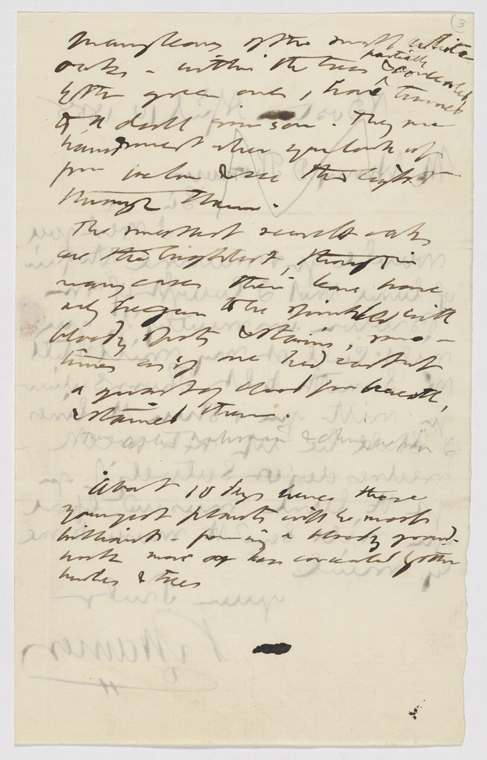 3
Many leaves of the small white
oaks - within the trees partially & concealed
by the green ones, have turned
to a dull crimson. They are
handsomest when you look up
from below & see the light
through them.
The smallest scarlet oaks
are the brightest, though in
many cases their leaves have
only begun to be sprinkled with
bloody spots & stains, some-
times as if one had cast up
a quart of blood from beneath,
& stained them.
About 10 days hence these
youngest plants will be most
brilliant forming a bloody ground-
work more or less concealed by other
bushes & trees